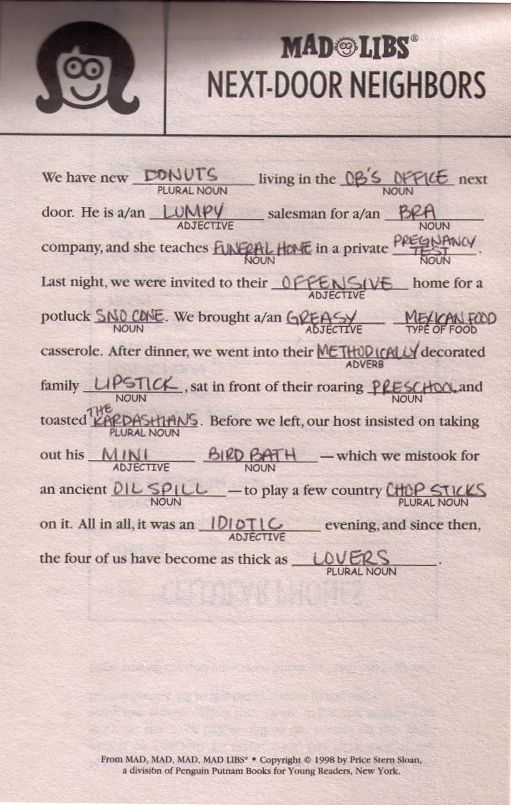 MAD LIBS®
NEXT-DOOR NEIGHBORS
We have new DONUTS living in the OB'S OFFICE next
PLURAL NOUN NOUN
door. He is a/an LUMPY salesman for a/an BRA
ADJECTIVE NOUN
company, and she teaches FUNERAL HOME in a private PREGNANCY TEST.
NOUN NOUN
Last night, we were invited to their OFFENSIVE home for a
ADJECTIVE
potluck SNO CONE. We brought a/an GREASY MEXICAN FOOD
NOUN ADJECTIVE TYPE OF FOOD
casserole. After dinner, we went into their METHODICALLY decorated
ADVERB
family LIPSTICK, sat in front of their roaring PRESCHOOL and
NOUN NOUN
toasted THE KARDASHIANS. Before we left, our host insisted on taking
PLURAL NOUN
out his MINI BIRD BATH —which we mistook for
ADJECTIVE NOUN
an ancient OIL SPILL —to play a few country CHOP STICKS
NOUN PLURAL NOUN
on it. All in all, it was an IDIOTIC evening, and since then,
ADJECTIVE
the four of us have become as thick as LOVERS.
PLURAL NOUN
From MAD, MAD, MAD, MAD LIBS® • Copyright © 1998 by Price Stern Sloan,
a division of Penguin Putnam Books for Young Readers, New York.